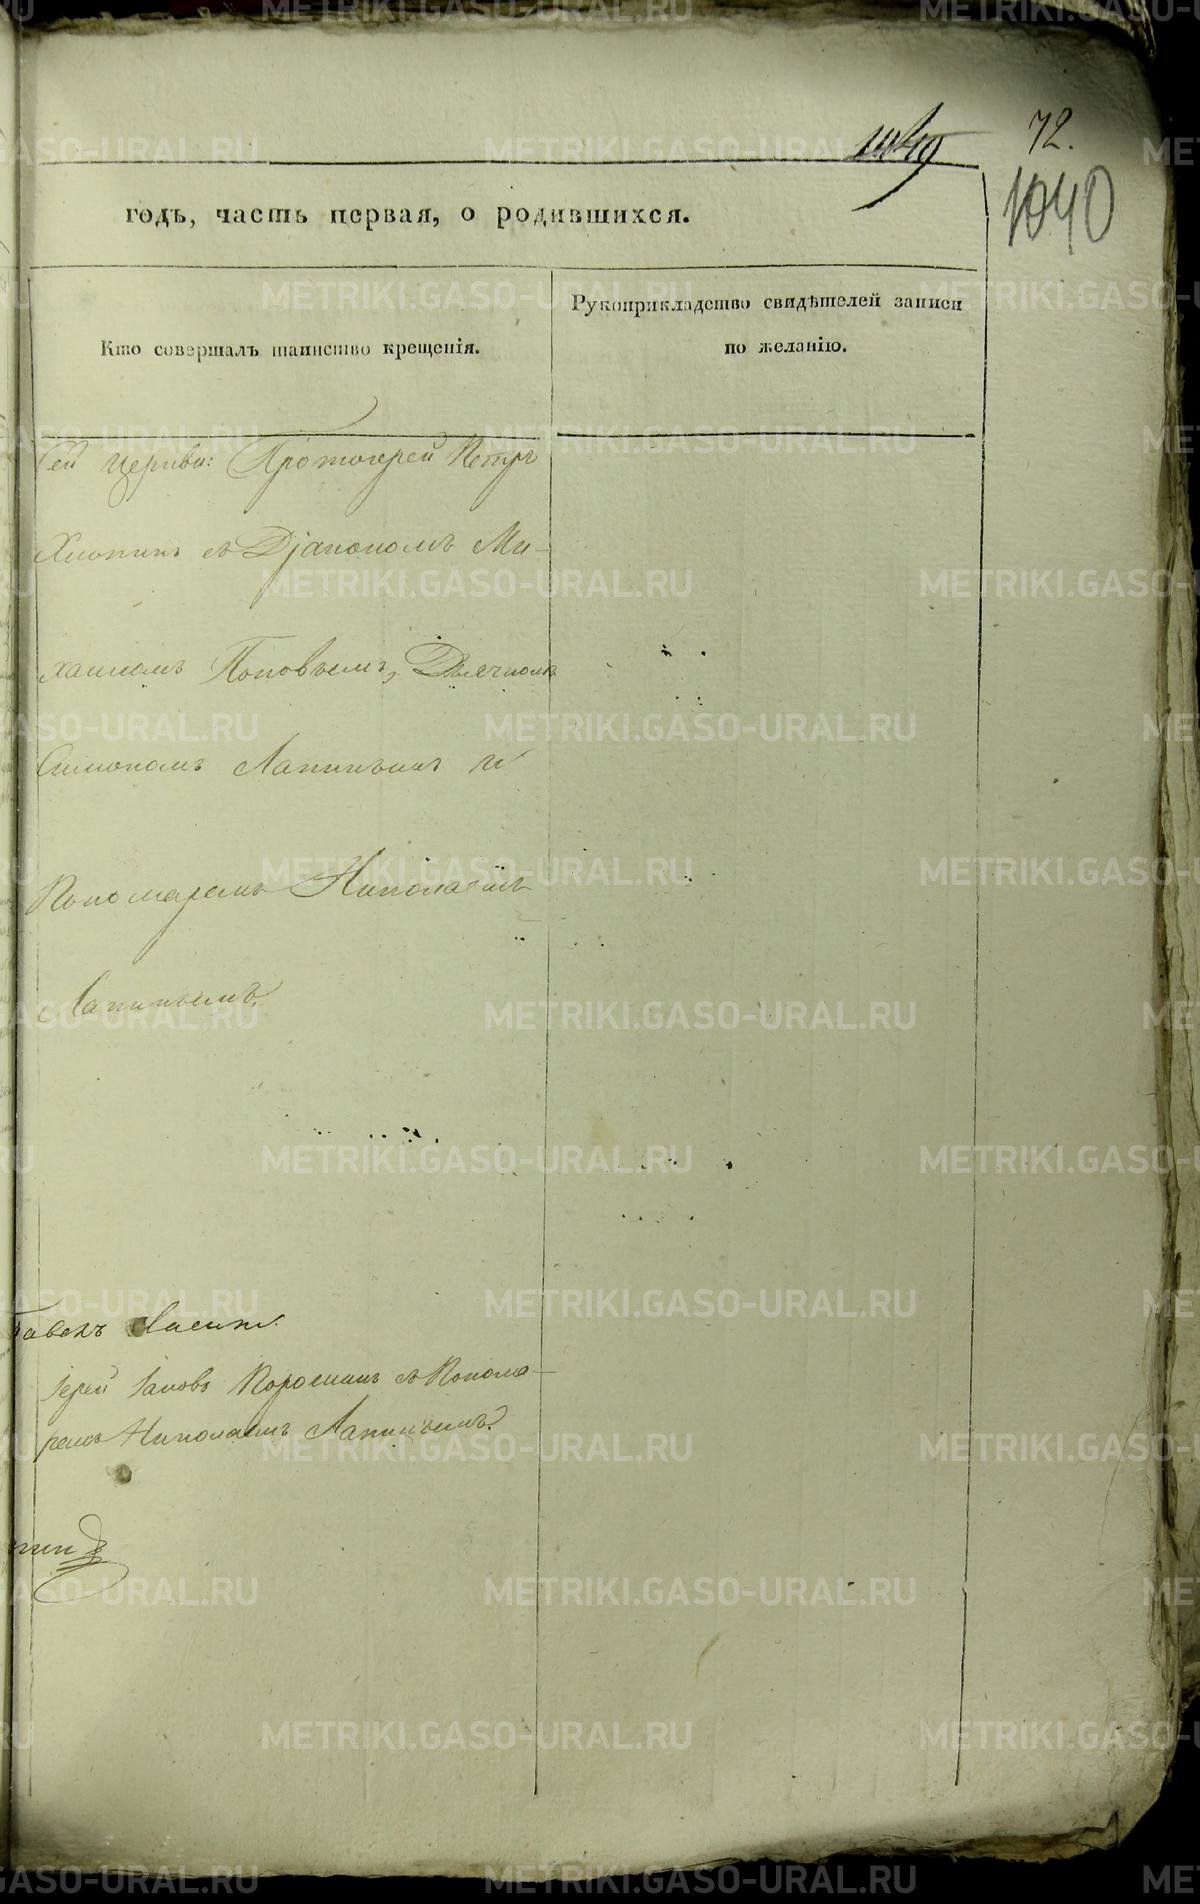 1049
72.
1040
годъ, часть первая, о родившихся.
Кто совершалъ таинство крещенія.
Рукоприкладство свидѣтелей записи
по желанію.
Сей церкви: Протоіерей Петръ
Хлопинъ съ Діакономъ Ми-
хаиломъ Поповымъ, Дьячкомъ
Симономъ Лапинымъ и
Пономаремъ Николаемъ
Лапинымъ.
Іерей Іаковъ съ Понома-
ремъ Николаемъ Лапинымъ.
METRIKI.GASO-URAL.RU